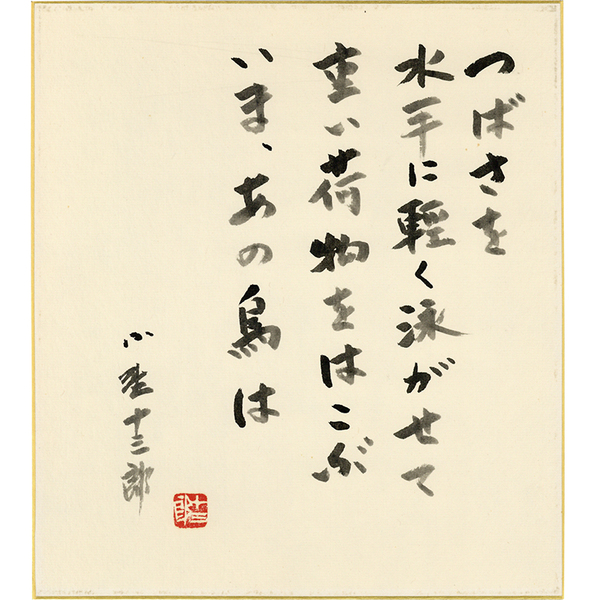 つばさを
水平に軽く泳がせて
重い荷物をはこぶ
いま、あの鳥は
小野十三郎
十三郎